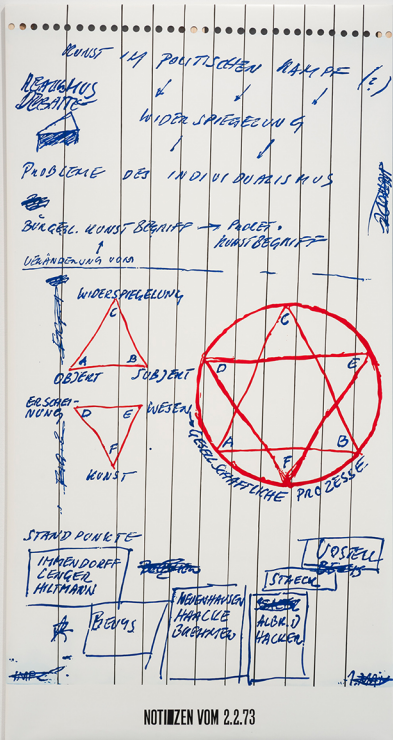 KUNST IM POLITISCHEN KAMPF (?)
REALISMUS
DEBATTE
WIDERSPIEGELUNG
PROBLEME DES INDIVIDUALISMUS
BÜRGERL. KUNSTBEGRIFF → PROLET.
KUNSTBEGRIFF
VERÄNDERUNG VOM
WIDERSPIEGELUNG
C
A B
OBJEKT SUBJEKT
ERSCHEI-
NUNG
D E WESEN
F
KUNST
C
D E
A B
F
GESELLSCHAFTLICHE PROZESSE
STANDPUNKTE
IMMENDORFF
CENGER
HILTMANN
VOSTELL
STAECK
BEUYS
NEUENHAUSEN
HAACKE
BREHMER
ALBR. D
HACKER
NOTIZEN VOM 2.2.73